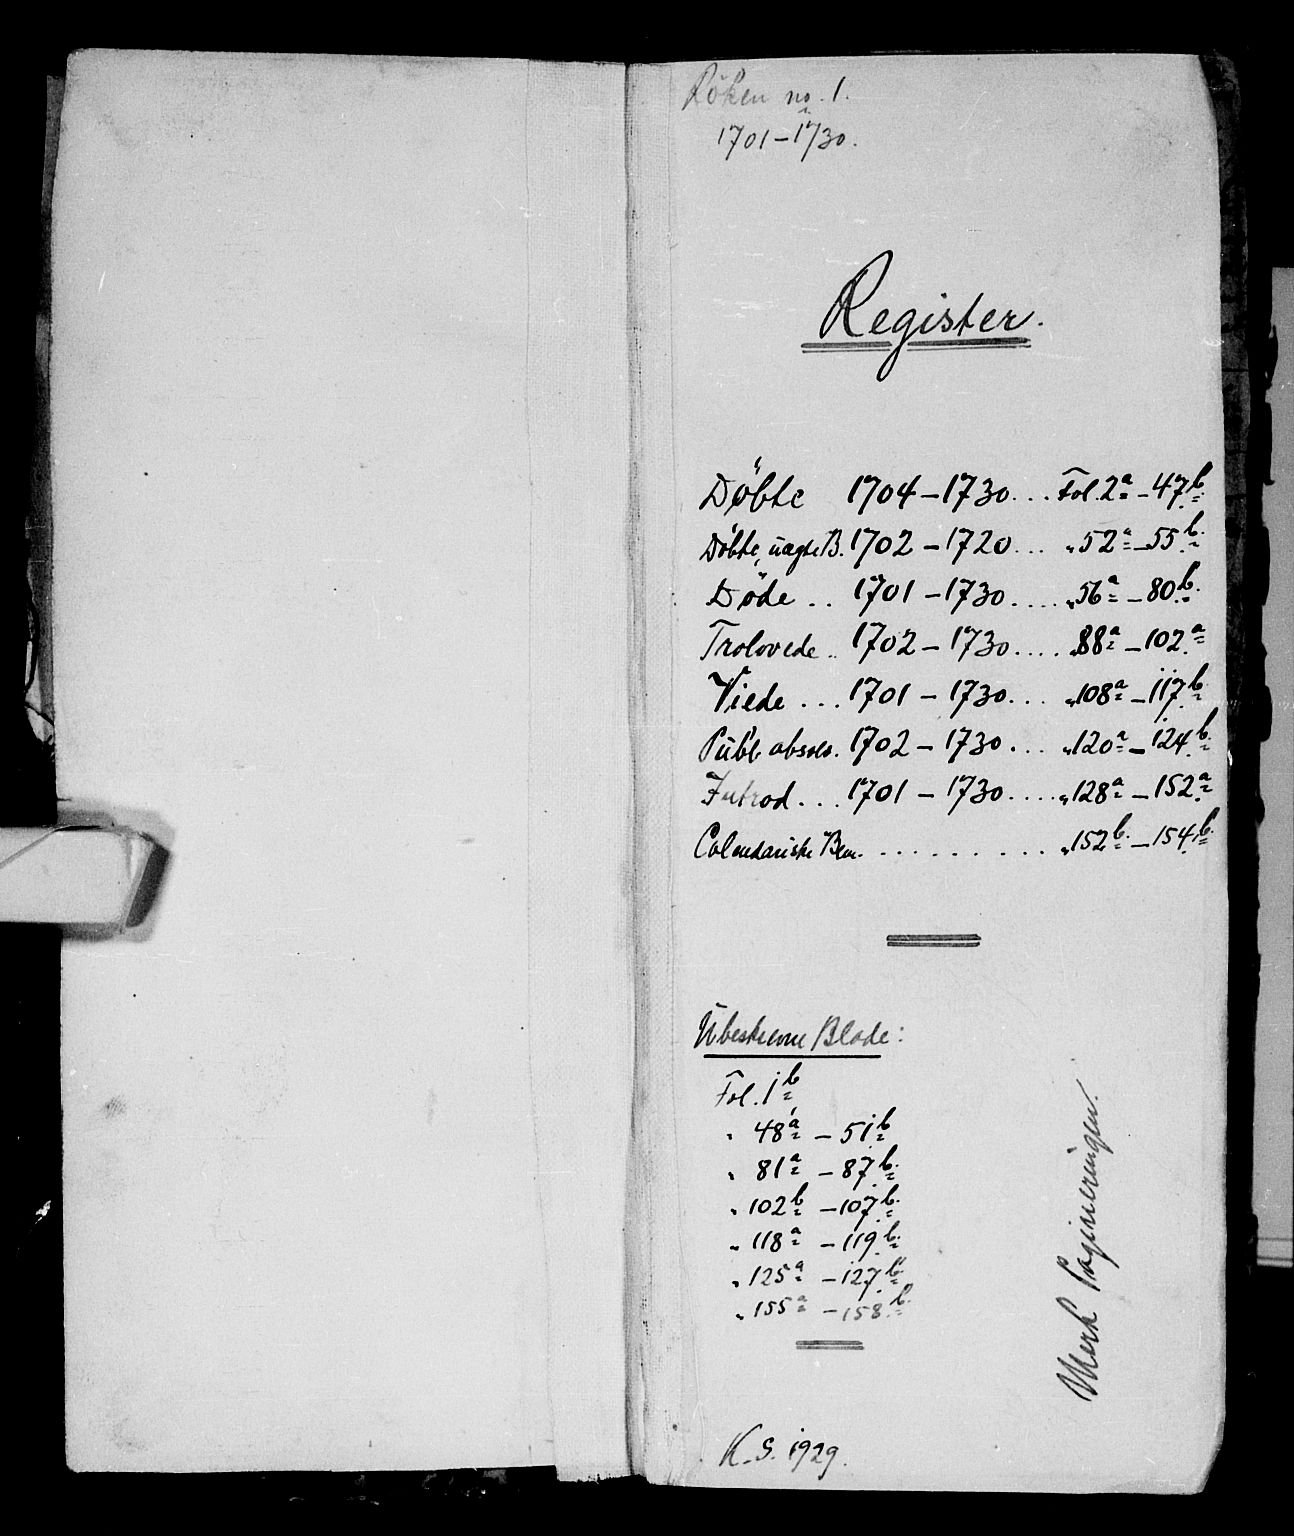 Röken no. 1.
1701-1730.
Register.
Döbte 1704-1730... Fol. 2a - 47b.
Döbte, uægte B. 1702-1720... " 52a - 55b.
Döde .. 1701-1730.... " 56a - 80b.
Trolovede .. 1702-1730.... " 88a - 102a
Viede ... 1701-1730... " 108a - 117b.
Publ. absol. 1702-1730.... " 120a - 124b.
Introd... 1701-1730.... " 128a - 152a
Calendariske Bem. ......... " 152b. - 154b.
Ubeskrevne Blade:
Fol. 1b
" 48a - 51b
" 81a - 87b.
" 102b - 107b.
" 118a - 119b.
" 125a - 127b.
" 155a - 158b.
Merk Pagineringen.
K. S. 1929.